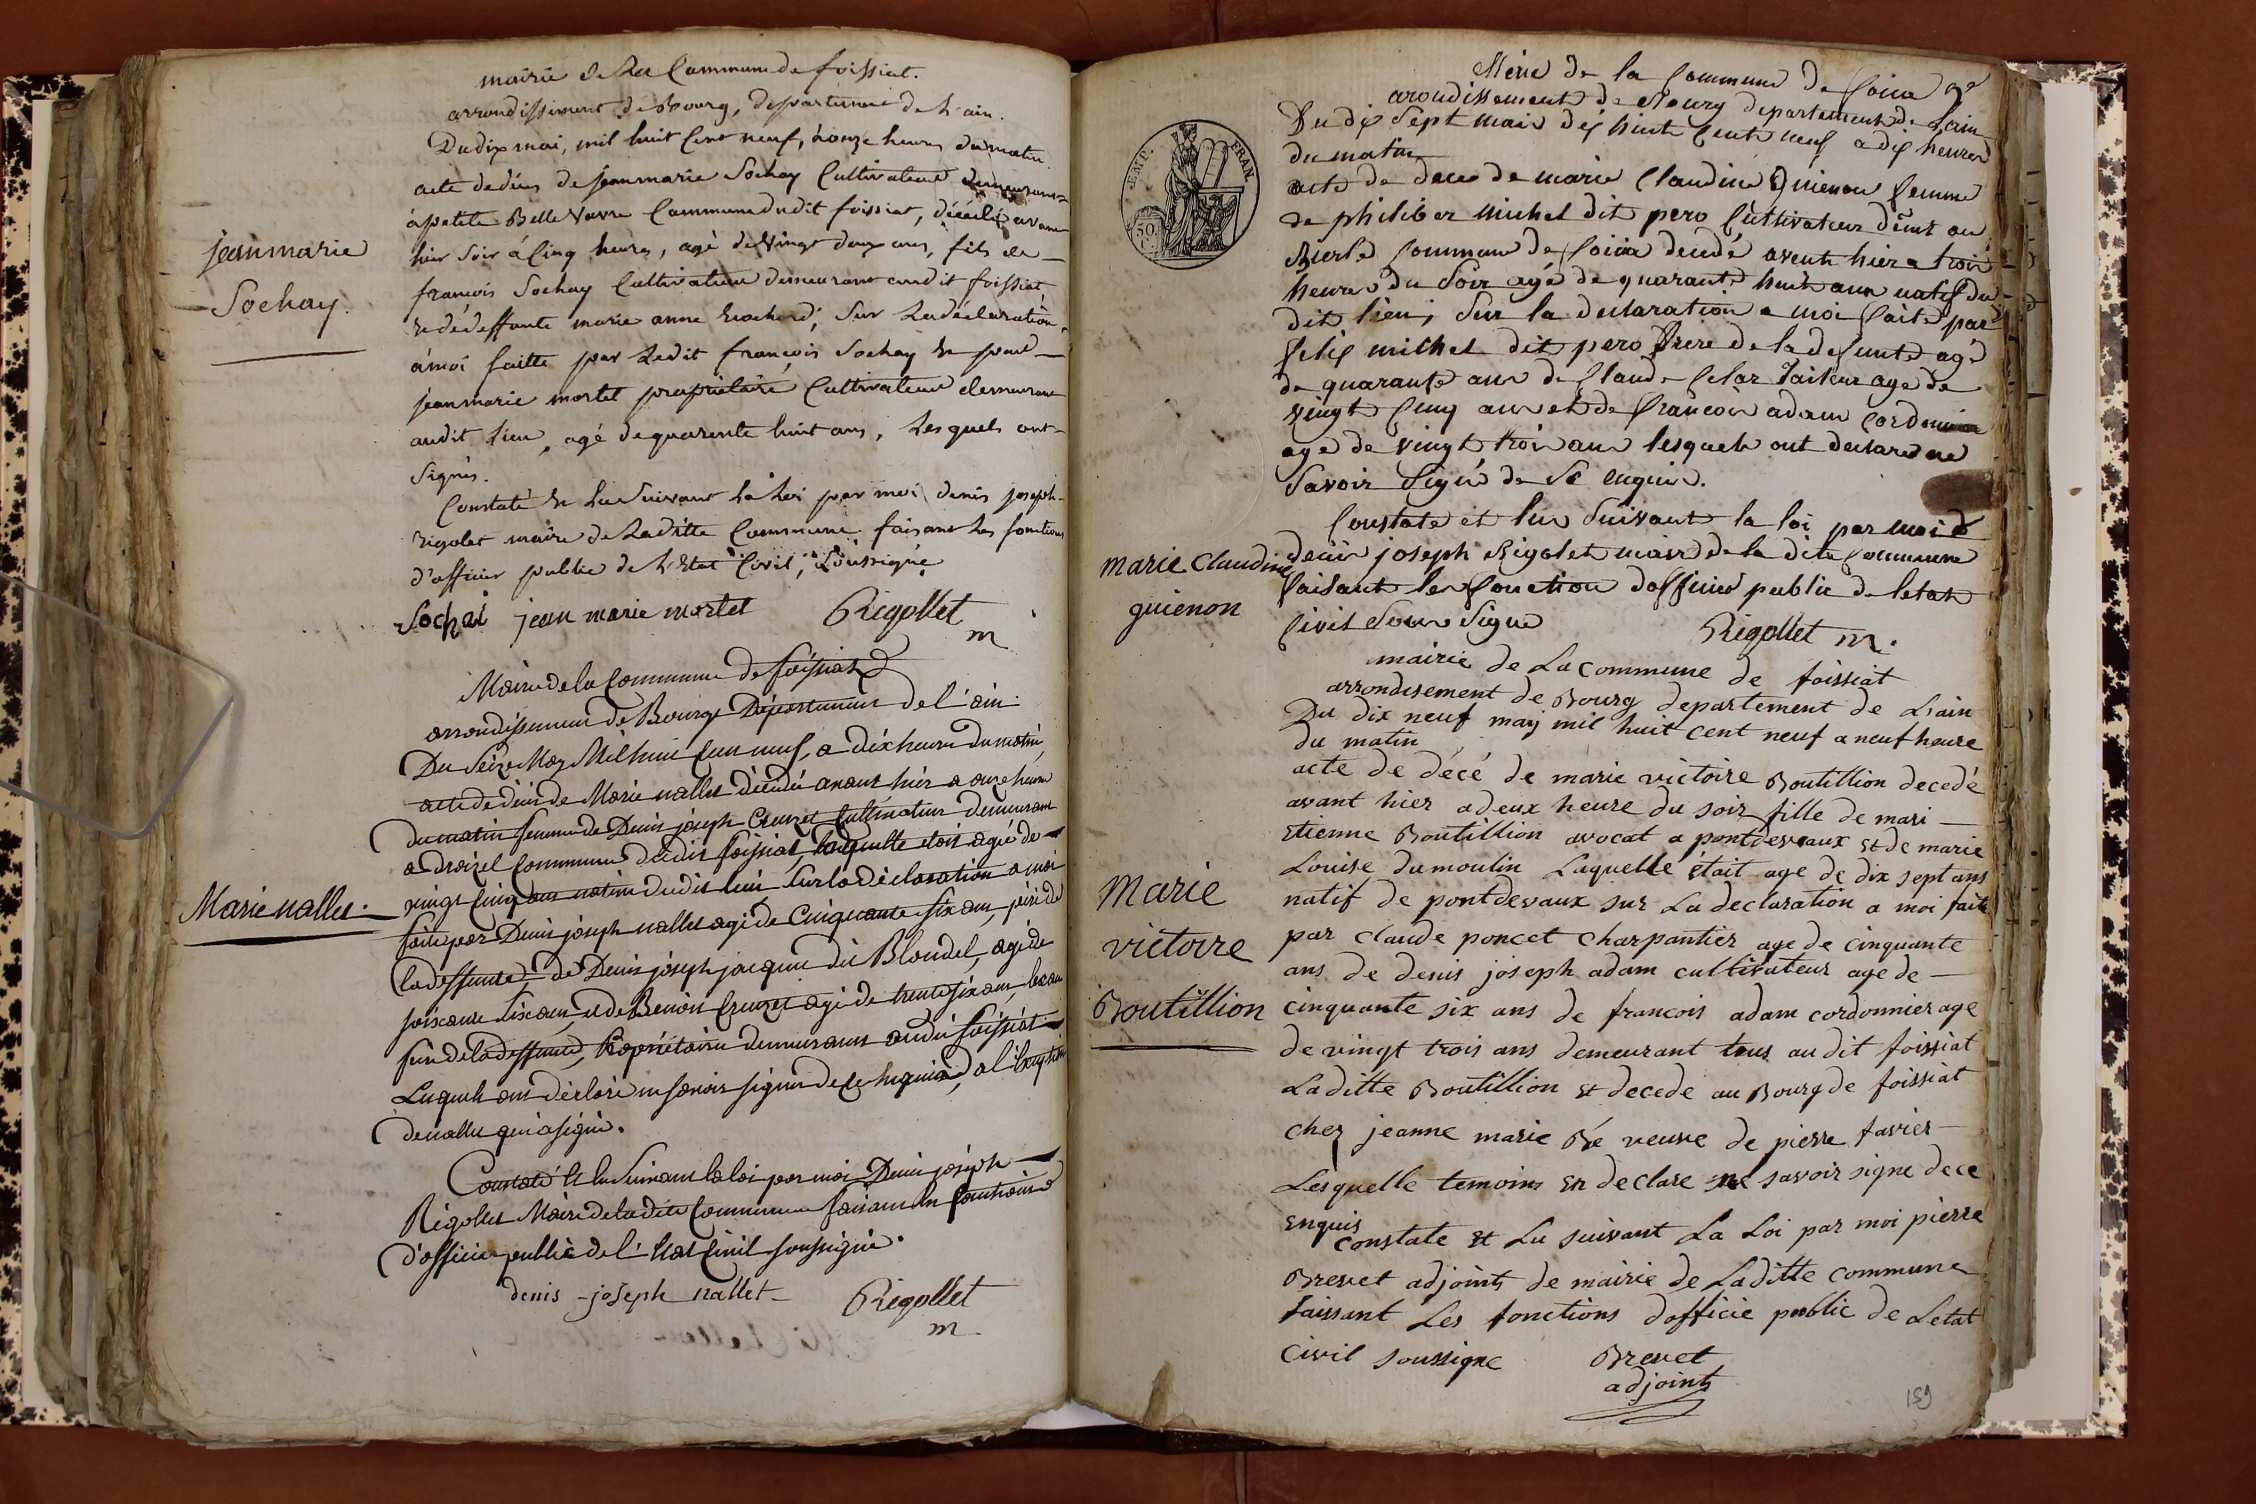 mairie de La Commune de foissiat.
arrondissement de Bourg, département de L'ain.
Du dix mai, mil huit Cent neuf, à onze heures du matin.
acte de décès de jean marie Sochay Cultivateur demeurant
à petite Belle Vavre Commune dudit foissiat, décédé avant
hier Soir à Cinq heures, agé de Vingt deux ans, fils de
françois Sochay Cultivateur demeurant audit foissiat
et dédeffunte marie anne Sur La déclaration
à moi faitte par Ledit françois Sochay et par
jean marie mortet propriétaire Cultivateur demeurant
audit Lieu, agé de quarente huit ans, Lesquels ont
Signés.
Constaté et Lu Suivant La Loi par moi denis joseph
rigolet maire de Laditte Commune faisant Les fonctions
d'officier public de L'Etat Civil, Soussigné
Sochai jean marie mortet Rigollet
m
jean marie
Sochay.
Mairie de la Commune de foissiat
arrondissement de Bourg Département de l'ain
Du Seize May Mil huit Cent neuf, a dix heures du matin,
acte de décès de Marie nallet décédée avant hier a onze heures
du matin femme de Denis joseph Creuzet Cultivateur demeurant
a Commune dudit foissiat, laquelle etoit agée de
vingt Cinq ans native dudit lieu Sur la déclaration a moi
faite par Denis joseph nallet agé de Cinquante Six ans, père de
la deffunte, de Denis joseph jacquet dit Blondel, agé de
soixante Six ans, et de Benoit Creuzet agé de trente six ans, beau
frère de la deffunte, Propriétaires demeurants audit foissiat
Lesquels ont déclaré ne savoir signer de ce enquis, a l'exeption
de nallet qui a signé.
Constaté et lu Suivant la loi par moi Denis joseph
Rigollet Maire de la dite Commune faisant les fonctions
d'officier public de l'état Civil soussigné.
denis joseph nallet Rigollet
m
Marie nallet.
EMP. FRAN.
50
Mérie de la Commune de
arondissement de Bourg departement de Lain
Du dix Sept mai dix huit Cent neuf a dix heures
du matin
acte de deces de marie Claudine Guienon femme
de philiber michel dit pero Cultivateur au
Commune de decedé avent hier a trois
heures du Soir agé de quarante huit ans natif du
dit lieu, Sur la declaration a moi faite par
felix michel dit pero frere de la defunte agé
de quarante ans de Claude tailleur age de
vingt Cinq ans et de françois adam Cordonnier
age de vingt trois ans lesquels ont declare ne
Savoir Signé de Se enquis.
Constate et lu Suivant la loi par moi
denis joseph Rigolet maire de la dite Commune
faisant les fonction d'officier public de letat
Civil Sous Signe Rigollet m.
marie Claudine
guienon
mairie de La commune de foissiat
arrondisement de Bourg departement de Lain
Du dix neuf may mil huit cent neuf a neuf heure
du matin
acte de décé de marie victoire Boutillion decedé
avant hier a deux heure du soir fille de mari
Etienne Boutillion avocat a pontdevaux Et de marie
Louise dumoulin Laquelle était age de dix sept ans
natif de pontdevaux sur La declaration a moi faite
par claude poncet charpantier age de cinquante
ans de denis joseph adam cultivateur age de
cinquante six ans de francois adam cordonnier age
de vingt trois ans demeurant tous au dit foissiat
Laditte Boutillion Et decede au Bourg de foissiat
chez jeanne marie Bé veuve de pierre favier
Lesquelle temoins En declare ne savoir signe de ce
Enquis
constate Et Lu suivant La Loi par moi pierre
Brevet adjoint de mairie de Laditte commune
faissant Les fonctions dofficie public de Letat
civil soussigne Brevet
adjoint
Marie
victoire
Boutillion
159